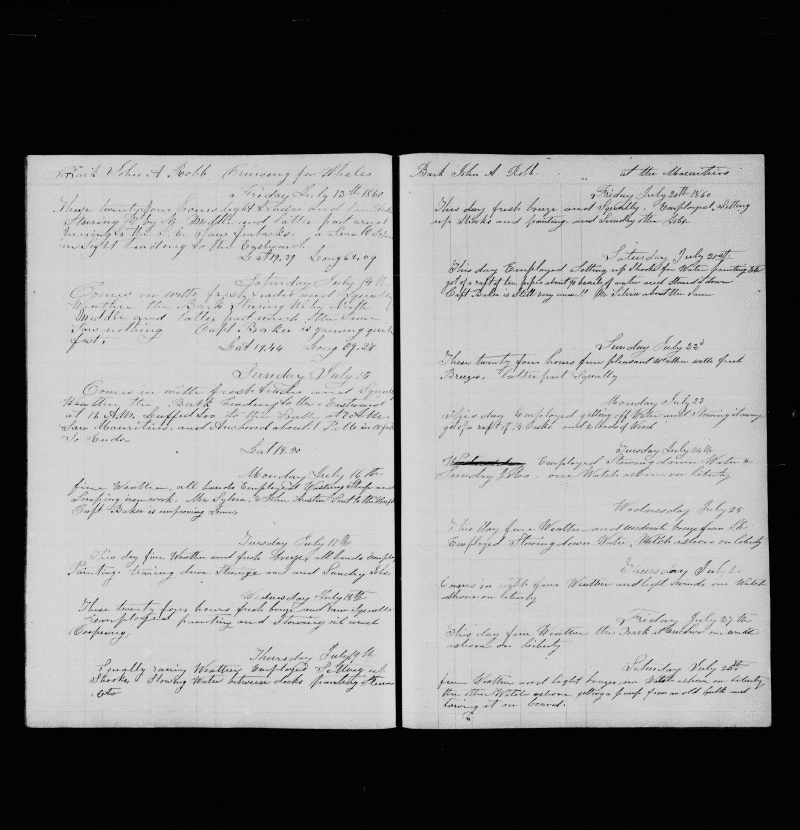 Bark John A Robb Cruising for Whales
Friday July 13th 1860
These twenty four hours light trades and
Steering W by N Middle and latter part
the S. E. Saw finbacks. a Small
in Sight heading to the Eastward
Lat 19.39 Long 61.09
Saturday July 14th
Comes in with fresh trades and Squally
Weather the Bark Steering W by N
Middle and latter part much the Same
Saw nothing Capt Baker is gaining
fast.
Lat 19.44 Long 59.28
Sunday July 15
Comes in with fresh trades and Squally
Weather the Bark heading to the Eastward
at 12 A.M. Luffed to the South at 7 A.M.
Saw Mauritius, and Anchored about 1 P.M. in
Lat 19.50
Monday July 16th
fine Weather, all hands Employed Washing Ship and
Scraping iron work. Mr Sylvia & John Austin Sent to the
Capt Baker is improving Some
Tuesday July 17th
This day fine Weather and fresh breeze, all hands employed
Painting tearing down Steerage and Sundry Jobs
Wednesday July 18th
These twenty four hours fresh breeze and Squalls
Employed painting and Stowing oil and
Coopering
Thursday July 19th
Squally rainy Weather Employed Setting up
Shooks, Stowing Water between decks painting Stern
&c
Bark John A Robb at the Mauritius
Friday July 20th 1860
This day fresh breeze and Squally Employed, Setting
up Shooks and painting and Sundry other Jobs
Saturday July 21st
This day Employed Setting up Shooks for Water painting &c
got of a raft of ten pipes about 90 barrels of water and Stowed down
Capt Baker is Still very unwell Mr Silvia about the Same
Sunday July 22d
These twenty four hours fine pleasant Weather with fresh
Breezes, latter part Squally
Monday July 23
This day Employed getting off Water and Stowing it away
got of a raft of 14 Casks and 2 boats of Wood
Tuesday July 24th
Employed Stowing down Water &
Sundry Jobs one Watch ashore on liberty
Wednesday July 25
This day fine Weather and moderate breeze from S.E.
Employed Stowing down Water, Watch ashore on liberty
Thursday July 26
Comes in with fine Weather and light winds one Watch
ashore on liberty
Friday July 27th
This day fine Weather the Bark at anchor one watch
ashore on liberty
Saturday July 28th
fine Weather and light breezes, one Watch ashore on liberty
the other Watch ashore getting a pump from an old hulk and
towing it on board.